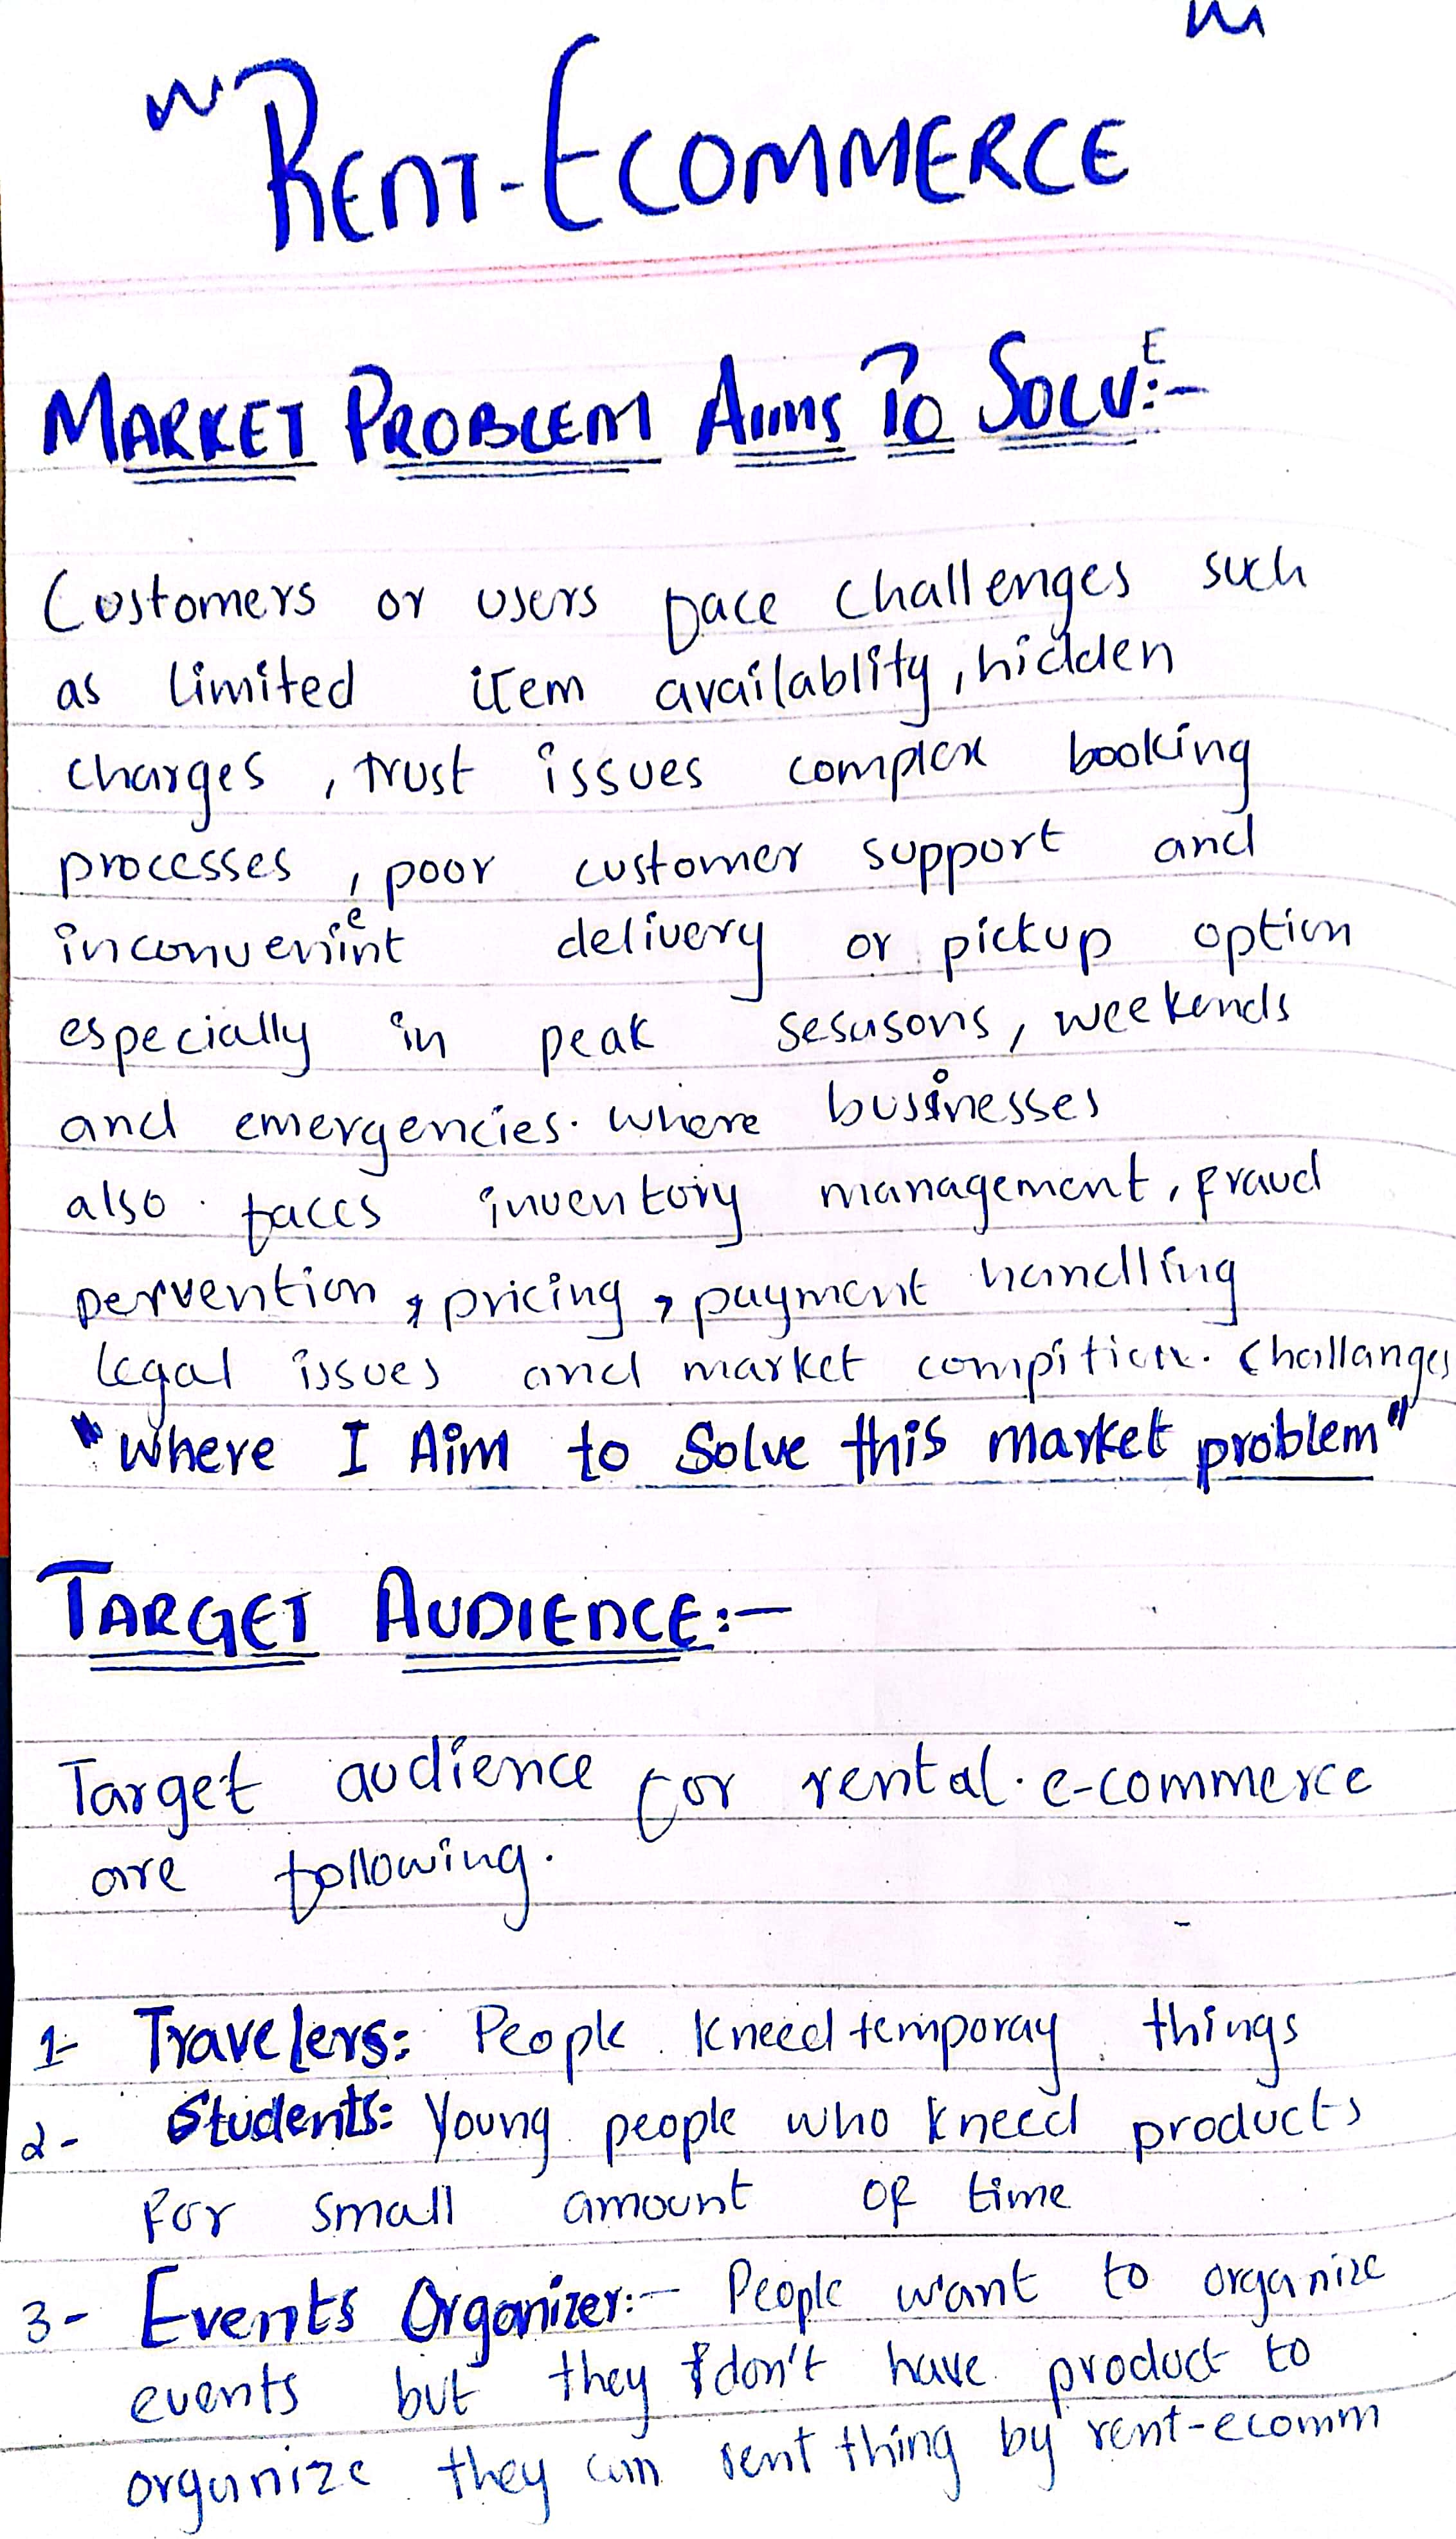 RENT-ECOMMERCE
MARKET PROBLEM AIMS TO SOLVE:-
Customers or users face challenges such
as limited item availablity, hidden
charges, trust issues complex booking
processes, poor customer support and
inconvenient delivery or pickup option
especially in peak sesusons, weekends
and emergencies. where businesses
also faces inventory management, fraud
pervention, pricing, payment handlling
legal issues and market compition. challanges
"Where I Aim to Solve this market problem"
TARGET AUDIENCE:-
Target audience for rental e-commerce
are following.
1- Travelers: People kneed temporay things
2- Students: Young people who kneed products
for small amount of time
3- Events Organizer:- People want to organize
events but they don't have product to
organize they can rent thing by rent-ecomm